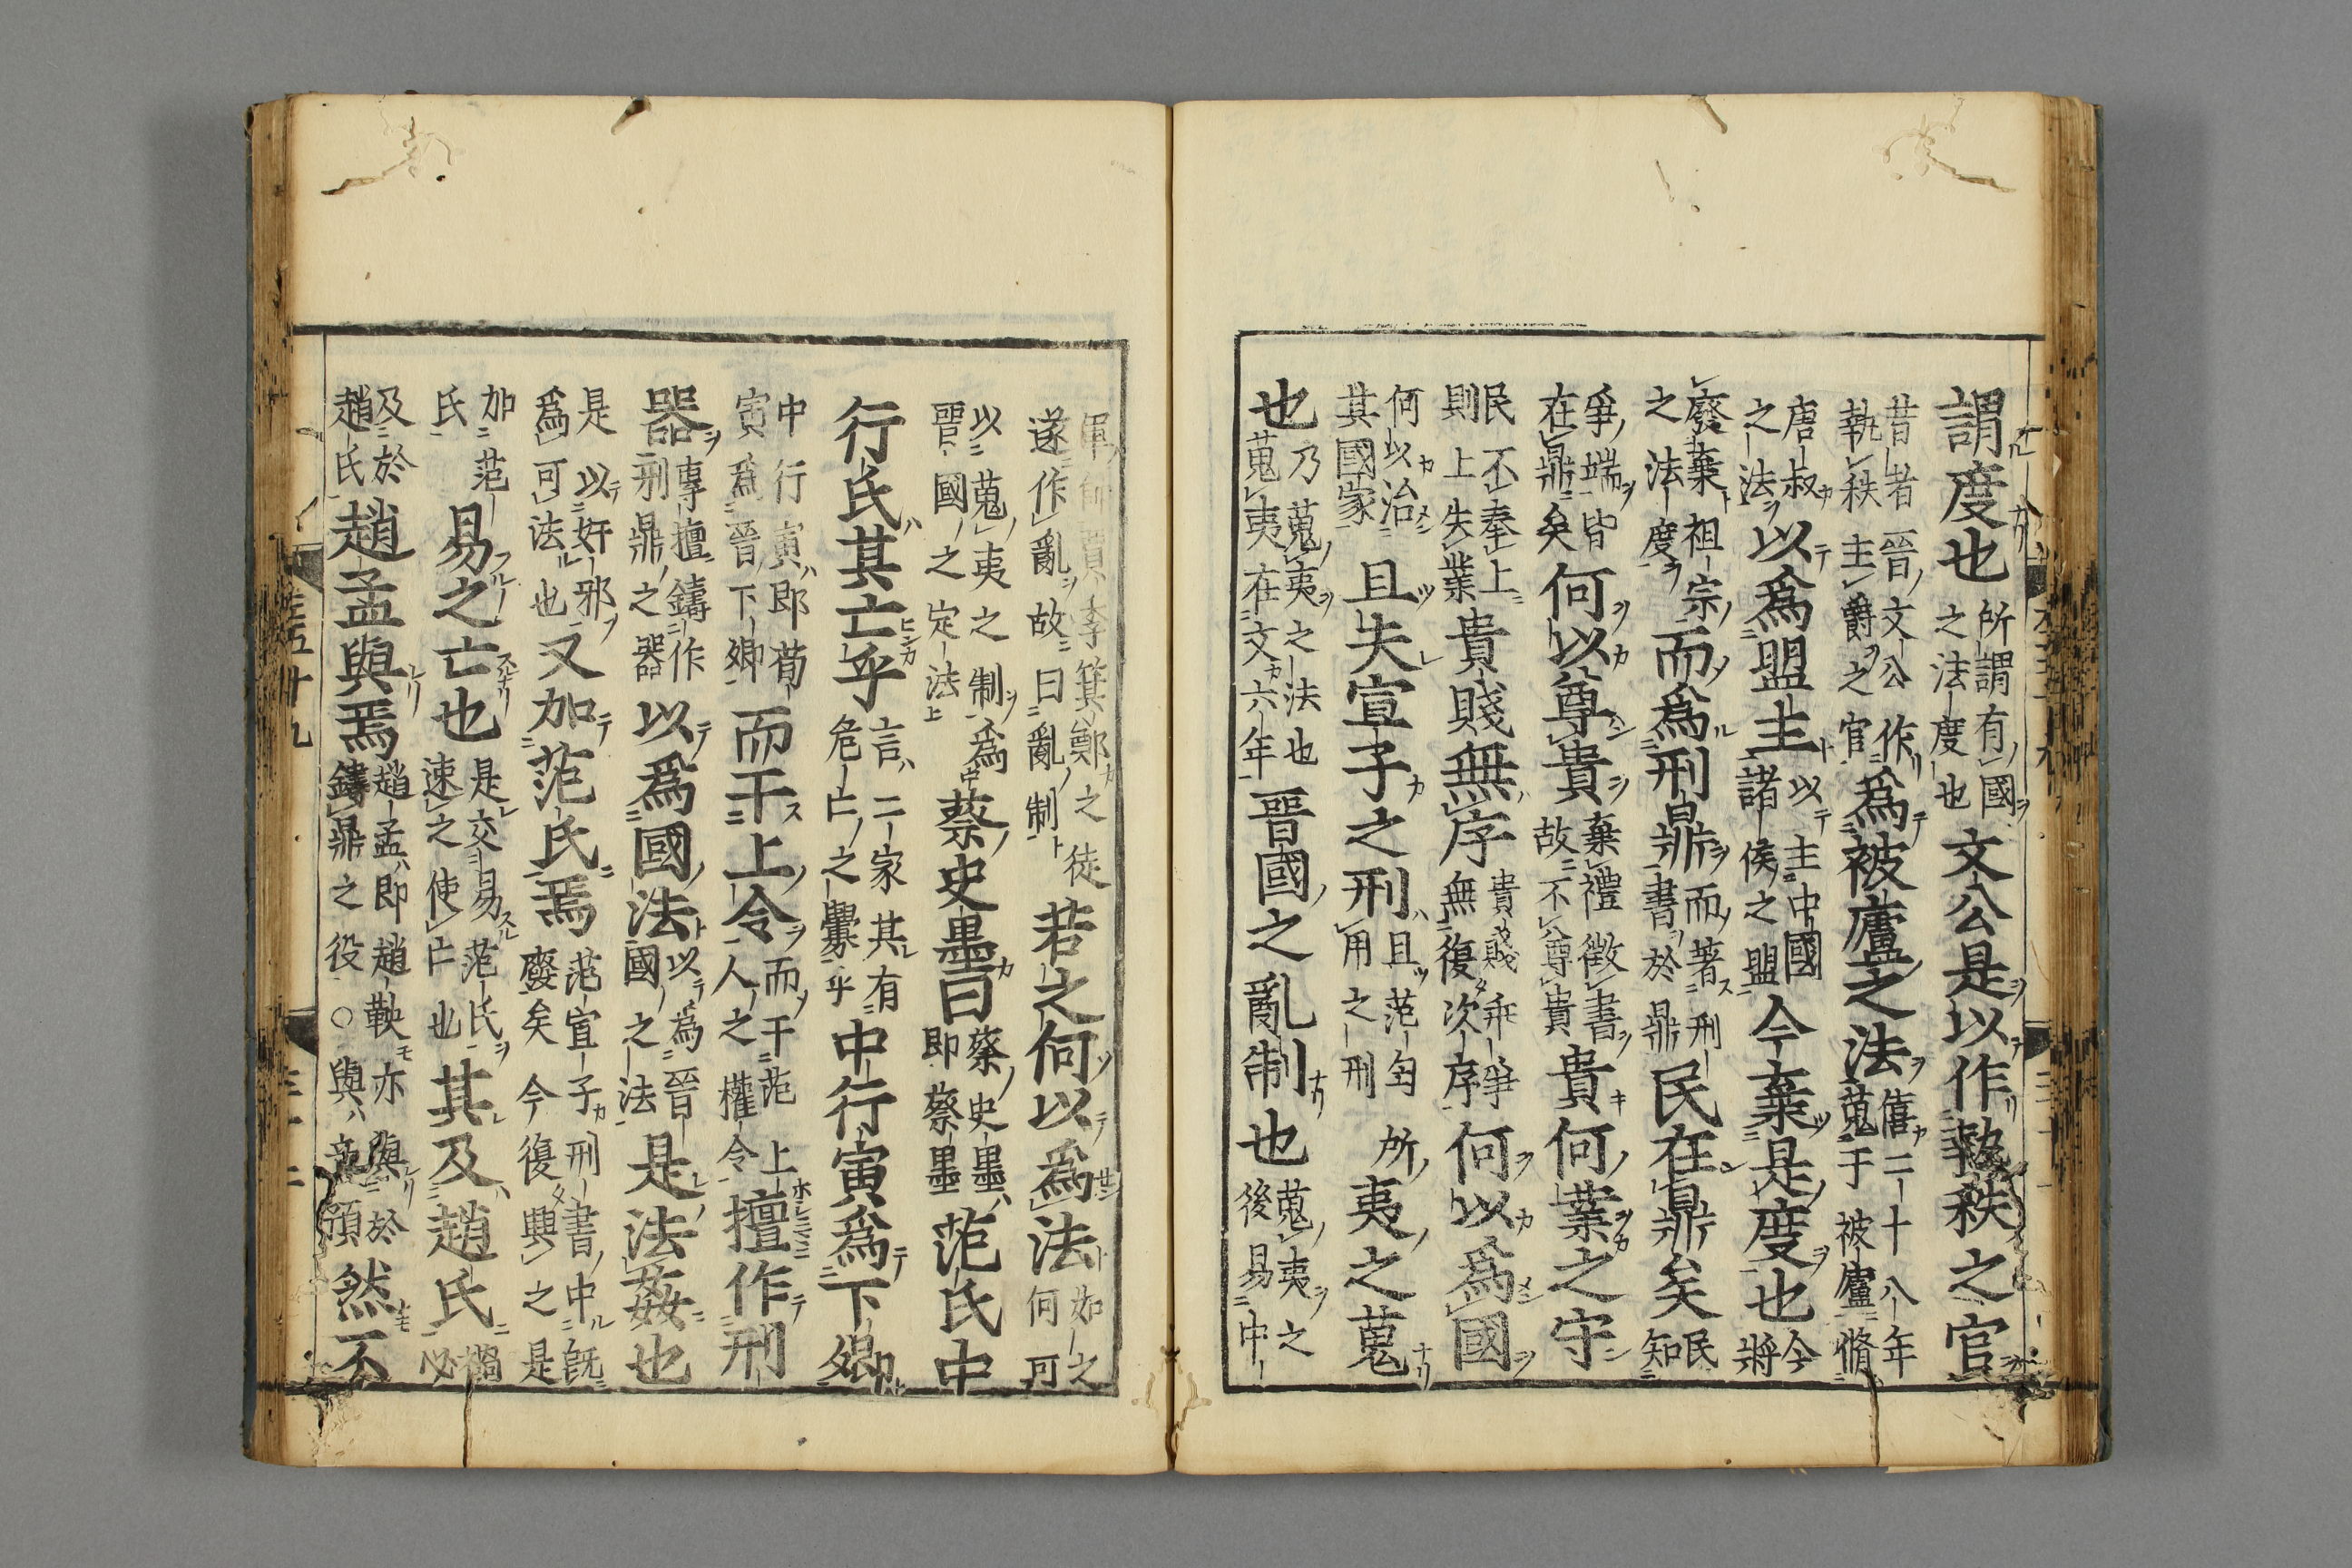 謂度也所謂有國之法度也文公是以作執秩之官
昔者晉文公作執秩主爵之官爲被廬之法僖二十八年蒐于被廬脩
唐叔之法以爲盟主以主中國諸侯之盟今棄是度也今將
廢棄祖宗之法度而爲刑鼎而著刑書於鼎民在鼎矣民知
爭端皆在鼎矣何以尊貴棄禮徵書故不尊貴貴何業之守
民不奉上則上失業貴賤無序貴賤乖爭無復次序何以爲國
何以治其國家且失宣子之刑且范匄所用之刑夷之蒐
也乃蒐夷之法也蒐夷在文六年晉國之亂制也蒐夷之後易中
軍帥賈季箕鄭之徒遂作亂故曰亂制若之何以爲法如之何可
以蒐夷之制爲晉國之定法蔡史墨曰蔡史墨即蔡墨范氏中
行氏其亡乎言二家其有危亡之釁乎中行寅爲下卿
中行寅即荀寅爲晉下卿而干上令而干范上人之權令擅作刑
器專擅鑄作刑鼎之器以爲國法以爲晉國之法是法姦也
是以奸邪爲可法也又加范氏焉范宣子刑書中既廢矣今復興之是
加范氏易之亡也是交易范氏速之使亡也其及趙氏禍必
及於趙氏趙孟與焉趙孟即趙鞅亦與於鑄鼎之役○與音預然不